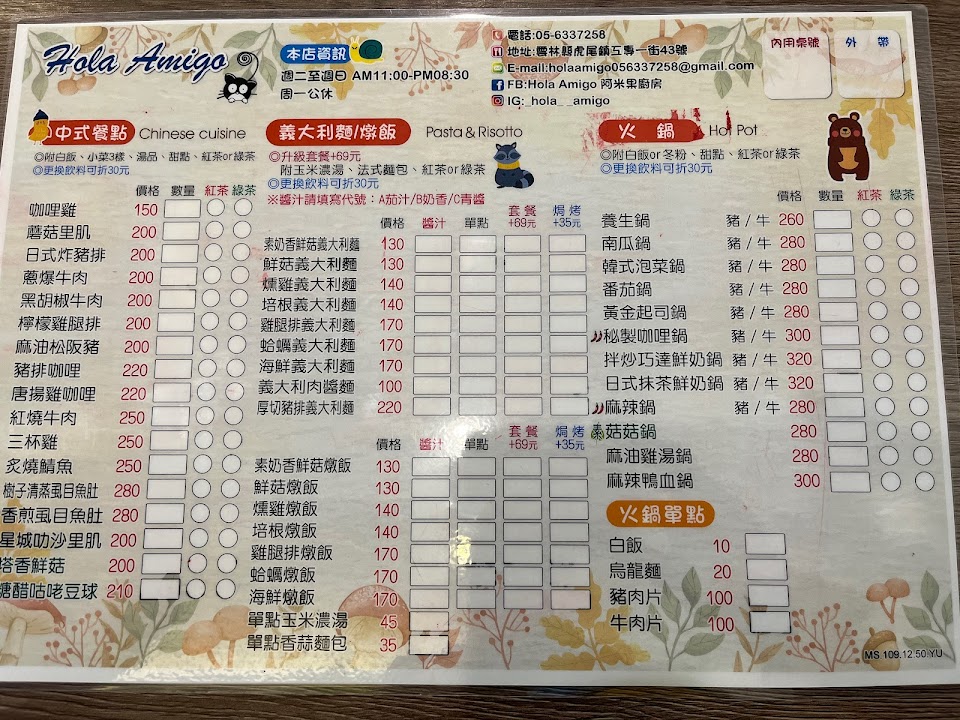 Hola Amigo
本店資訊
週二至週日 AM11:00-PM08:30
周一公休
電話:05-6337258
地址:雲林縣虎尾鎮五專一街43號
E-mail:holaamigo056337258@gmail.com
FB:Hola Amigo 阿米果廚房
IG:_hola__amigo
內用桌號
外 帶
中式餐點 Chinese cuisine
◎附白飯、小菜3樣、湯品、甜點、紅茶or綠茶
◎更換飲料可折30元
價格 數量 紅茶 綠茶
咖哩雞 150
蘑菇里肌 200
日式炸豬排 200
蔥爆牛肉 200
黑胡椒牛肉 200
檸檬雞腿排 200
麻油松阪豬 200
豬排咖哩 220
唐揚雞咖哩 220
紅燒牛肉 250
三杯雞 250
炙燒鯖魚 250
樹子清蒸虱目魚肚 280
香煎虱目魚肚 280
星城叻沙里肌 200
塔香鮮菇 200
糖醋咕咾豆球 210
義大利麵/燉飯 Pasta & Risotto
◎升級套餐+69元
附玉米濃湯、法式麵包、紅茶or綠茶
◎更換飲料可折30元
※醬汁請填寫代號：A茄汁/B奶香/C青醬
價格 醬汁 單點 套餐+69元 焗烤+35元
素奶香鮮菇義大利麵 130
鮮菇義大利麵 130
燻雞義大利麵 140
培根義大利麵 140
雞腿排義大利麵 170
蛤蠣義大利麵 170
海鮮義大利麵 170
義大利肉醬麵 100
厚切豬排義大利麵 220
價格 醬汁 單點 套餐+69元 焗烤+35元
素奶香鮮菇燉飯 130
鮮菇燉飯 130
燻雞燉飯 140
培根燉飯 140
雞腿排燉飯 170
蛤蠣燉飯 170
海鮮燉飯 170
單點玉米濃湯 45
單點香蒜麵包 35
火 鍋 Hot Pot
◎附白飯or冬粉、甜點、紅茶or綠茶
◎更換飲料可折30元
價格 數量 紅茶 綠茶
養生鍋 豬 / 牛 260
南瓜鍋 豬 / 牛 280
韓式泡菜鍋 豬 / 牛 280
番茄鍋 豬 / 牛 280
黃金起司鍋 豬 / 牛 280
秘製咖哩鍋 豬 / 牛 300
拌炒巧達鮮奶鍋 豬 / 牛 320
日式抹茶鮮奶鍋 豬 / 牛 320
麻辣鍋 豬 / 牛 280
素菇菇鍋 280
麻油雞湯鍋 280
麻辣鴨血鍋 300
火鍋單點
白飯 10
烏龍麵 20
豬肉片 100
牛肉片 100
MS 109.12.50.YU